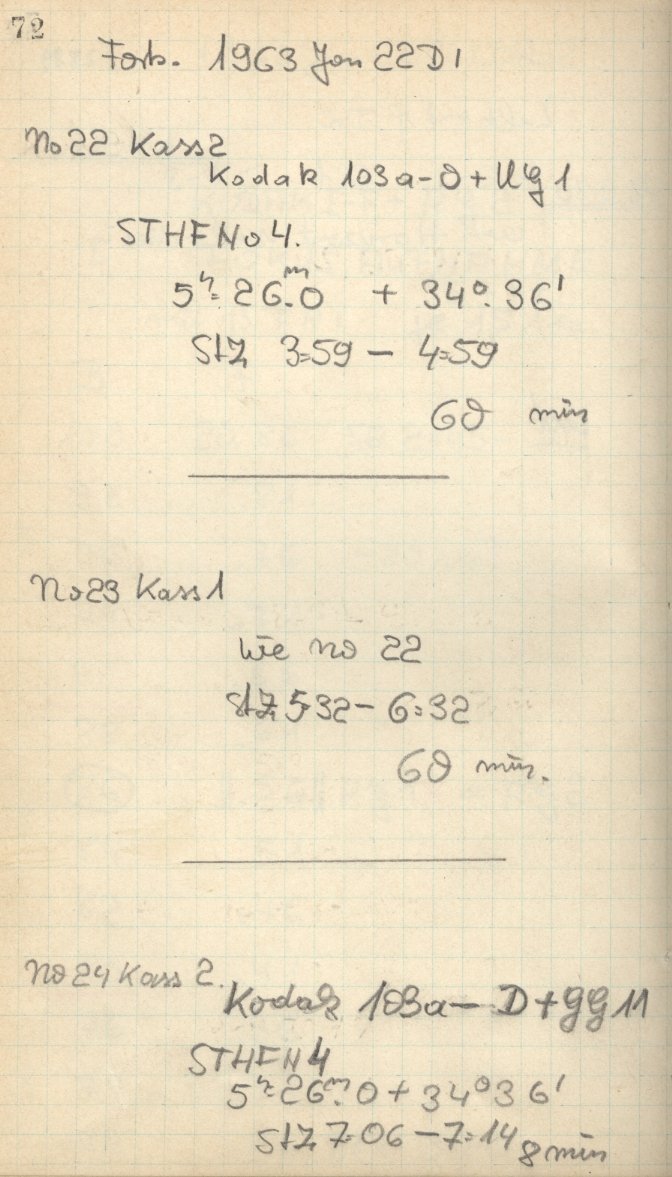 72
Forts. 1963 Jan 22 D1
No 22 Kass 2
Kodak 103a-O + UG 1
STHF No 4.
5h: 26.m0 + 34°. 36'
StZ 3=59 - 4=59
60 min
No 23 Kass 1
wie No 22
StZ 5=32 - 6=32
60 min.
No 24 Kass 2.
Kodak 103a - D + GG 11
STHF N 4
5h= 26m. 0 + 34° 36'
StZ 7=06 - 7=14 8 min